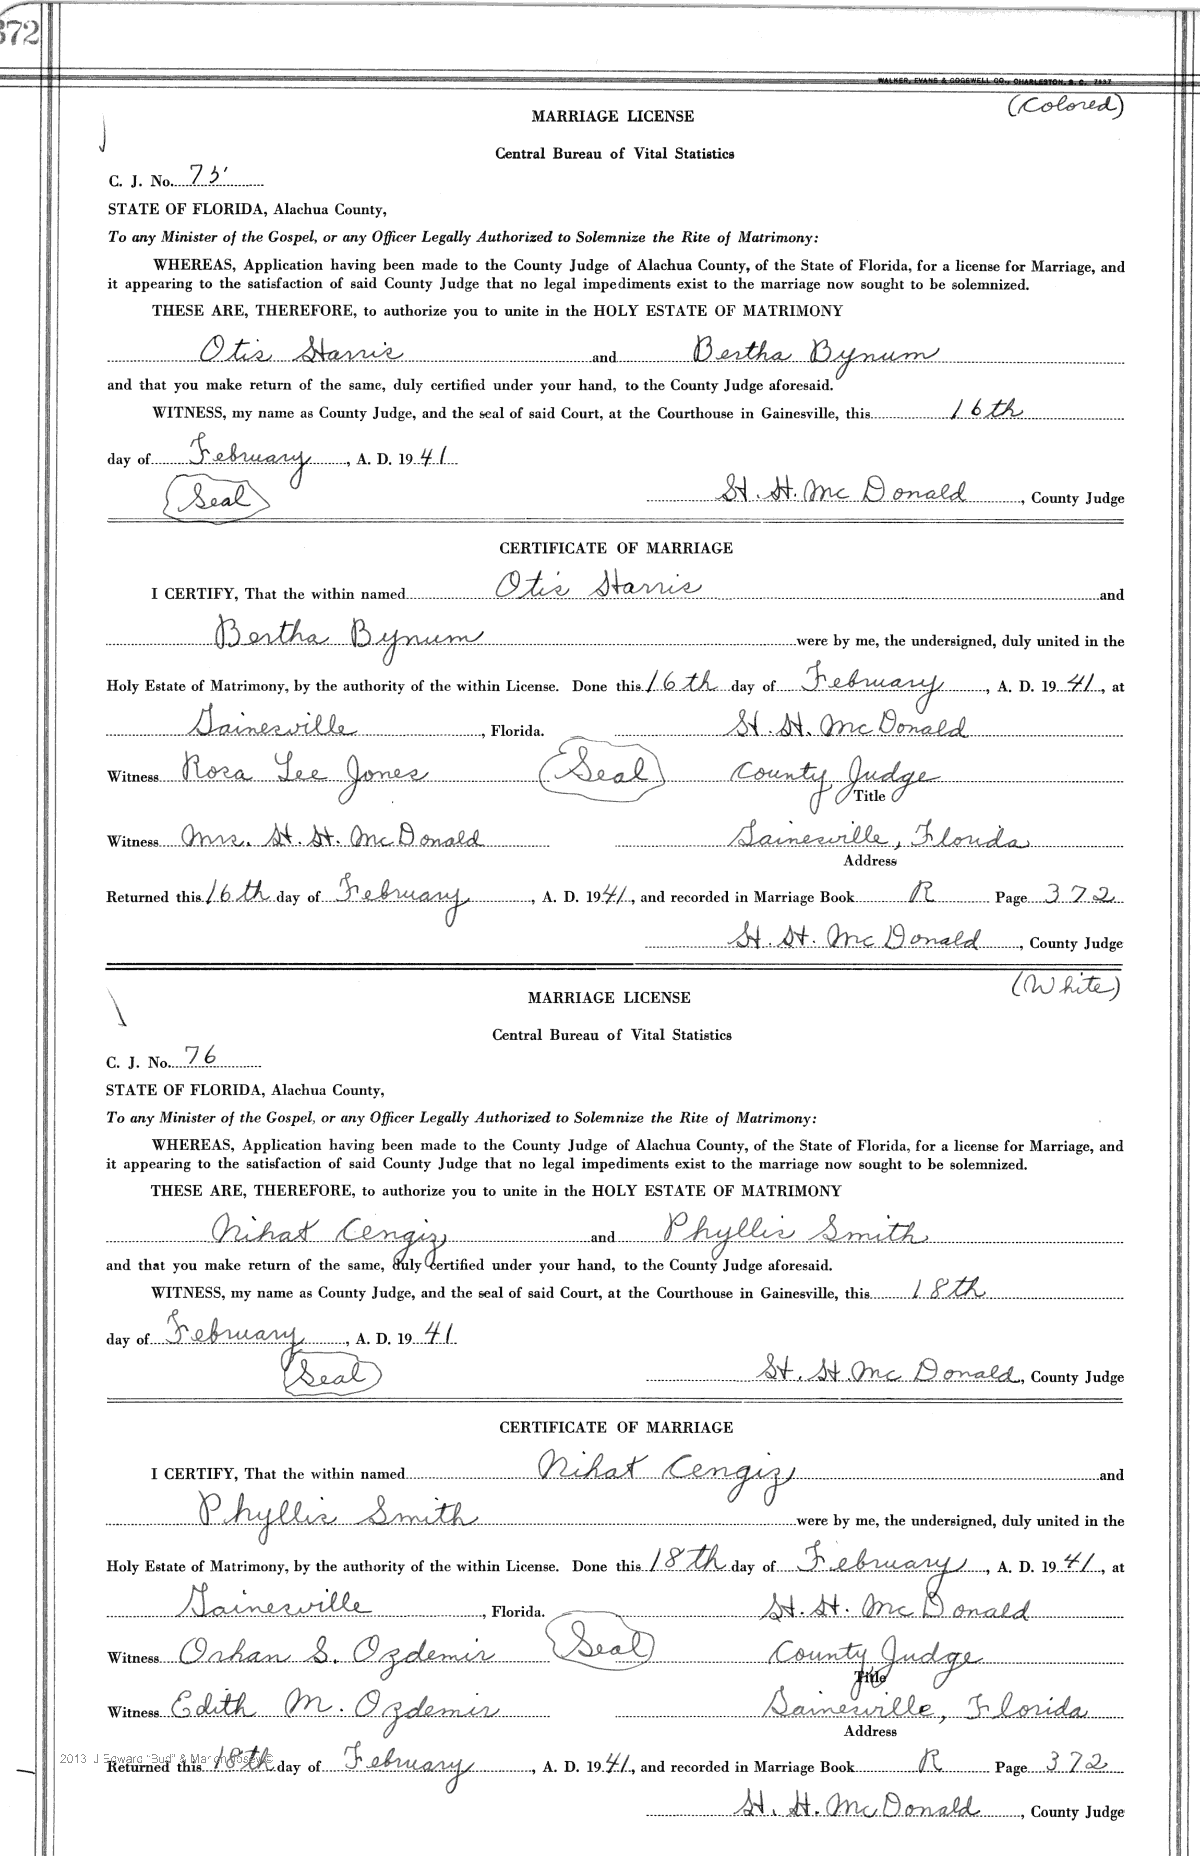 372
WALKER, EVANS & COGSWELL CO., CHARLESTON, S. C. 7537
(Colored)
MARRIAGE LICENSE
Central Bureau of Vital Statistics
C. J. No. 75
STATE OF FLORIDA, Alachua County,
To any Minister of the Gospel, or any Officer Legally Authorized to Solemnize the Rite of Matrimony:
WHEREAS, Application having been made to the County Judge of Alachua County, of the State of Florida, for a license for Marriage, and
it appearing to the satisfaction of said County Judge that no legal impediments exist to the marriage now sought to be solemnized.
THESE ARE, THEREFORE, to authorize you to unite in the HOLY ESTATE OF MATRIMONY
Otis Harris and Bertha Bynum
and that you make return of the same, duly certified under your hand, to the County Judge aforesaid.
WITNESS, my name as County Judge, and the seal of said Court, at the Courthouse in Gainesville, this 16th
day of February, A. D. 1941
Seal
H. H. McDonald, County Judge
CERTIFICATE OF MARRIAGE
I CERTIFY, That the within named Otis Harris and
Bertha Bynum were by me, the undersigned, duly united in the
Holy Estate of Matrimony, by the authority of the within License. Done this 16th day of February, A. D. 1941, at
Gainesville, Florida. H. H. McDonald
Witness Rosa Lee Jones Seal County Judge
Title
Witness Mrs. H. H. McDonald Gainesville, Florida
Address
Returned this 16th day of February, A. D. 1941, and recorded in Marriage Book R Page 372
H. H. McDonald, County Judge
(White)
MARRIAGE LICENSE
Central Bureau of Vital Statistics
C. J. No. 76
STATE OF FLORIDA, Alachua County,
To any Minister of the Gospel, or any Officer Legally Authorized to Solemnize the Rite of Matrimony:
WHEREAS, Application having been made to the County Judge of Alachua County, of the State of Florida, for a license for Marriage, and
it appearing to the satisfaction of said County Judge that no legal impediments exist to the marriage now sought to be solemnized.
THESE ARE, THEREFORE, to authorize you to unite in the HOLY ESTATE OF MATRIMONY
Nihat Cengiz and Phyllis Smith
and that you make return of the same, duly certified under your hand, to the County Judge aforesaid.
WITNESS, my name as County Judge, and the seal of said Court, at the Courthouse in Gainesville, this 18th
day of February, A. D. 1941
Seal
H. H. McDonald, County Judge
CERTIFICATE OF MARRIAGE
I CERTIFY, That the within named Nihat Cengiz and
Phyllis Smith were by me, the undersigned, duly united in the
Holy Estate of Matrimony, by the authority of the within License. Done this 18th day of February, A. D. 1941, at
Gainesville, Florida. H. H. McDonald
Witness Orhan S. Ozdemir Seal County Judge
Title
Witness Edith M. Ozdemir Gainesville, Florida
Address
2013 J Edward "Bud" & Marion
Returned this 18th day of February, A. D. 1941, and recorded in Marriage Book R Page 372
H. H. McDonald, County Judge